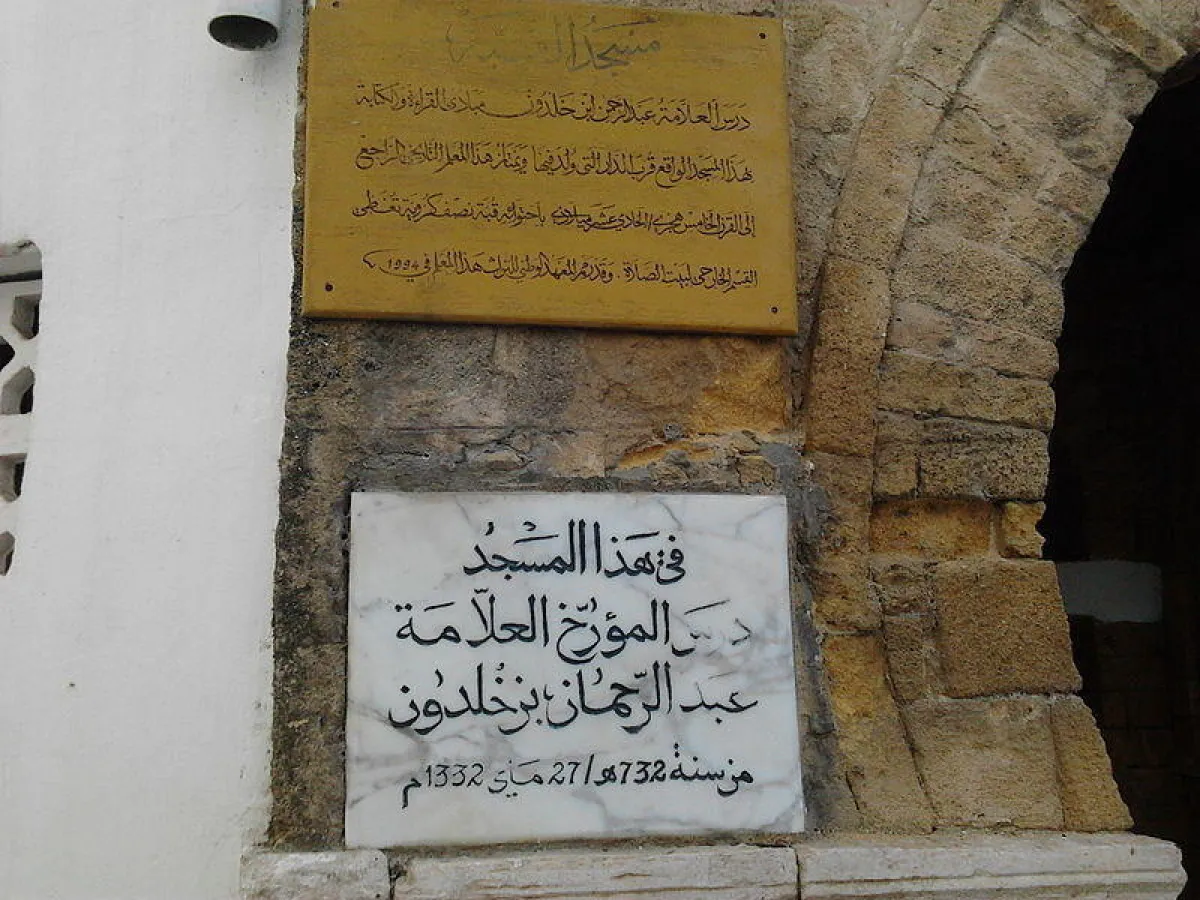 مسجد القبة
درس العلامة عبد الرحمن ابن خلدون مبادئ القراءة والكتابة
بهذا المسجد الواقع قرب الدار التي ولد فيها ويمتاز هذا المعلم التاريخي الراجع
إلى القرن الخامس هجري / الحادي عشر ميلادي باحتوائه قبة نصف كروية تغطي
القسم الخارجي لبيت الصلاة . وقد رمم المعهد الوطني للتراث هذا المعلم في 1994
في هذا المسجد
درس المؤرّخ العلاّمة
عبد الرّحمان بن خلدون
من سنة 732هـ/27 ماي 1332م